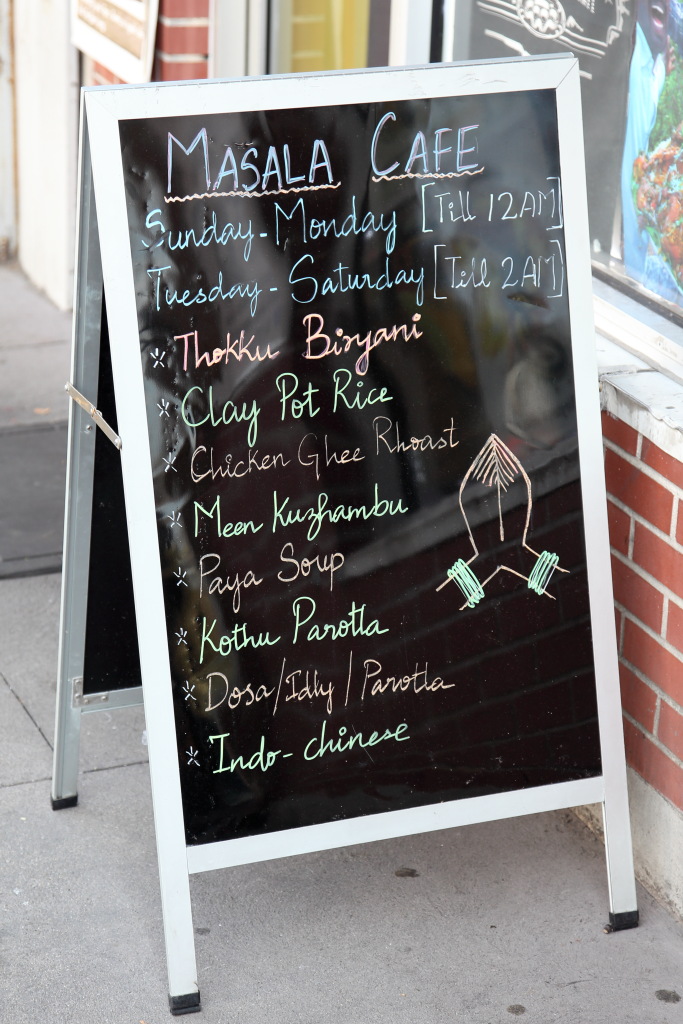 MASALA CAFE
Sunday - Monday [Till 12AM]
Tuesday - Saturday [Till 2AM]
Thokku Biryani
Clay Pot Rice
Chicken Ghee Rhoast
Meen Kuzhambu
Paya Soup
Kothu Parotta
Dosa/Idly/Parotta
Indo-chinese